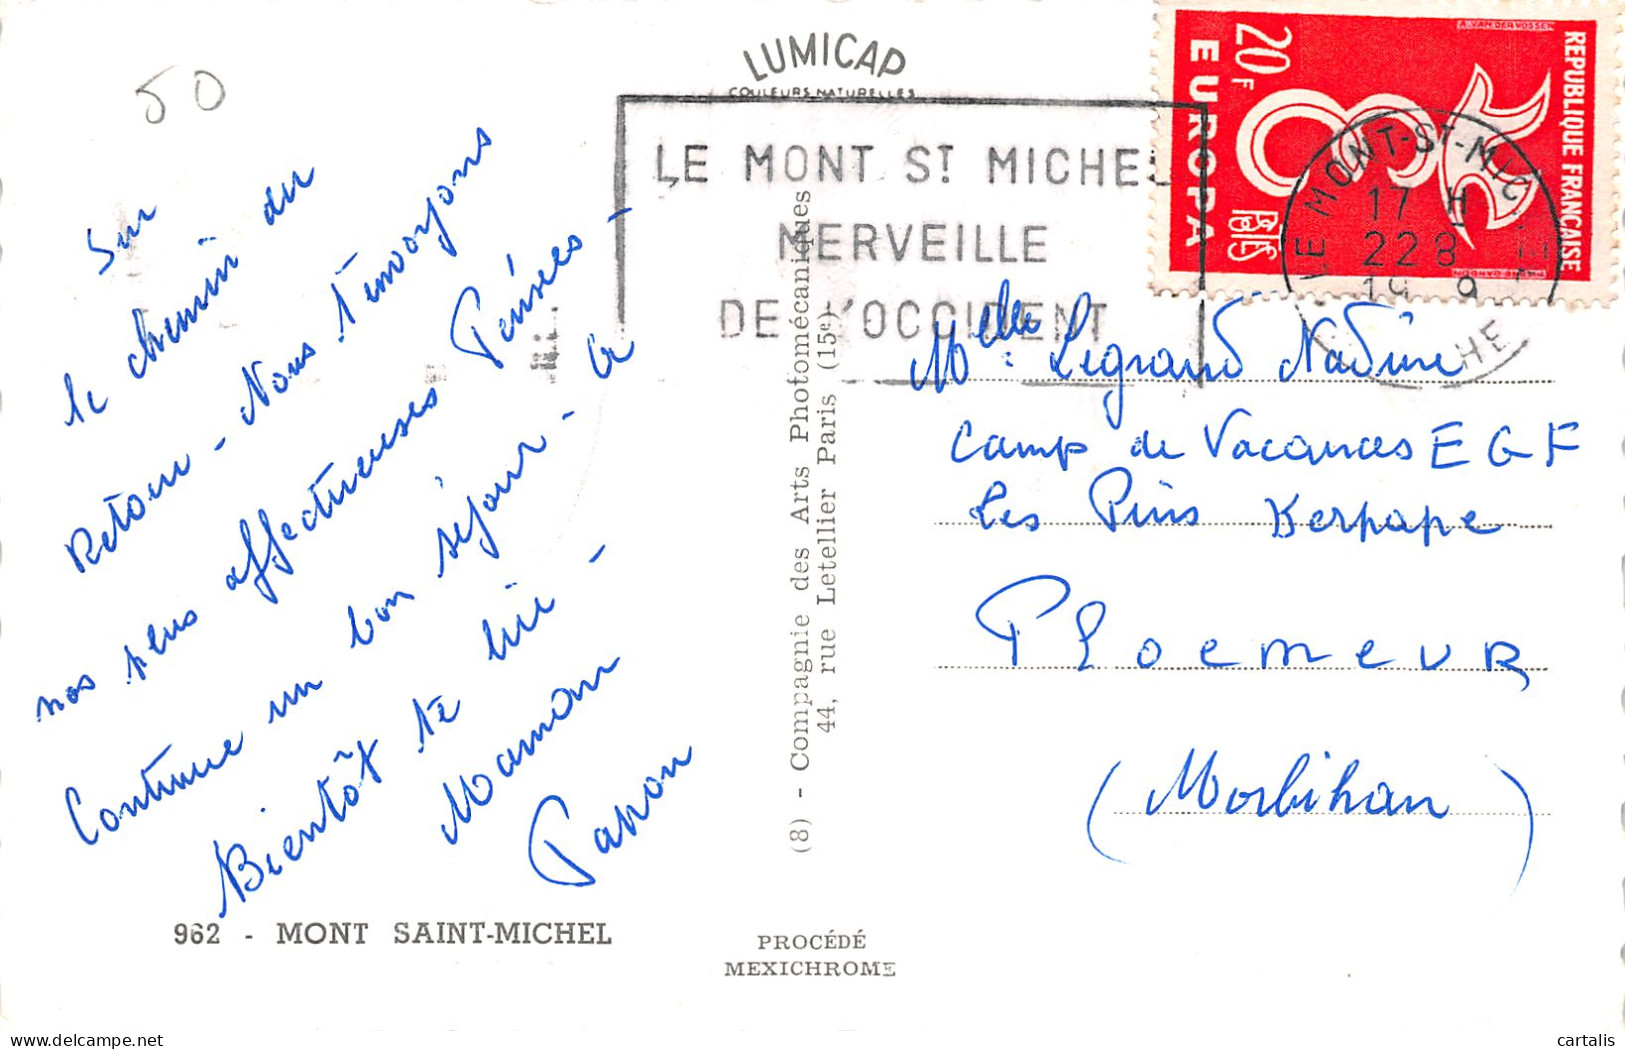 50
LUMICAP
COULEURS NATURELLES
LE MONT ST MICHEL
MERVEILLE
DE L'OCCIDENT
REPUBLIQUE FRANÇAISE
20F
EUROPA
A. VAN DER VOSSEN
LE MONT-ST-MIC
17 H
22 8
19 9
CHE
Sur
le chemin du
Retour - Nous t'envoyons
nos plus affectueuses Pensées -
Continue un bon séjour - à
Bientôt te lire -
Maman
Papon
962 - MONT SAINT-MICHEL
(8) - Compagnie des Arts Photomécaniques
44, rue Letellier Paris (15e)
PROCÉDÉ
MEXICHROME
Melle Legrand Nadine
Camp de Vacances EGF
Les Pins Kerpape
PLOEMEUR
(Morbihan)
cartalis
delcampe.net